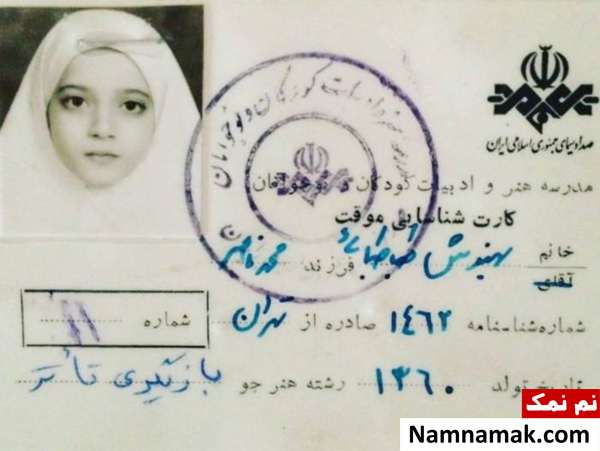 صدا و سیمای جمهوری اسلامی ایران
مدرسه هنر و ادبیات کودکان و نوجوانان
کارت شناسایی موقت
خانم
آقای
فرزند محمد ناصر
شماره شناسنامه ۱۴۶۲ صادره از تهران
شماره
تاریخ تولد ۱۳۶۰ رشته هنر جو بازیگری تأتر
نم نمک
Namnamak.com